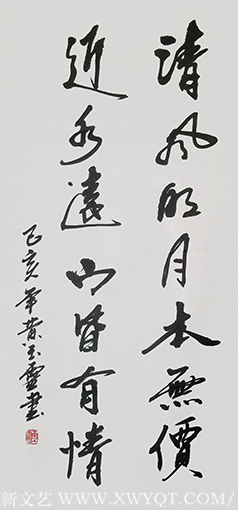 清風明月本無價
近水遠山皆有情
己亥年黄玉靈書
新文艺 WWW.XWYQT.COM/